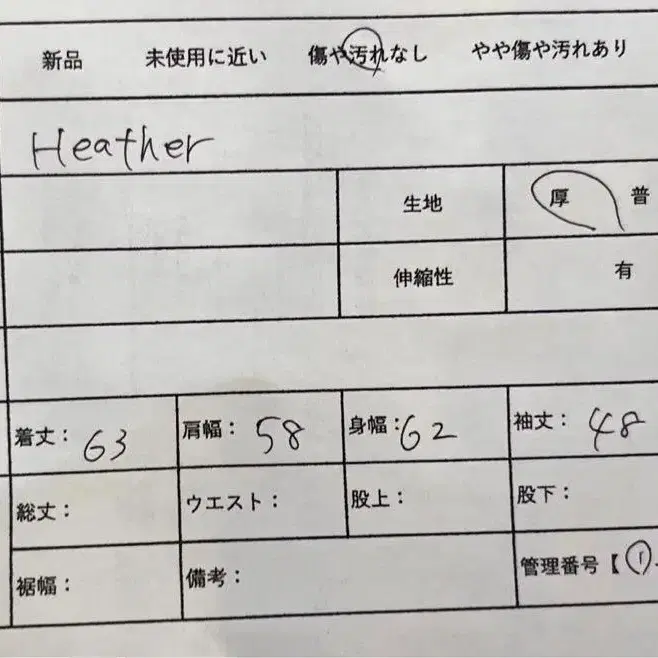 新品 未使用に近い 傷や汚れなし やや傷や汚れあり
Heather
生地 厚 普
伸縮性 有
着丈: 63 肩幅: 58 身幅: 62 袖丈: 48
総丈: ウエスト: 股上: 股下:
裾幅: 備考: 管理番号【①